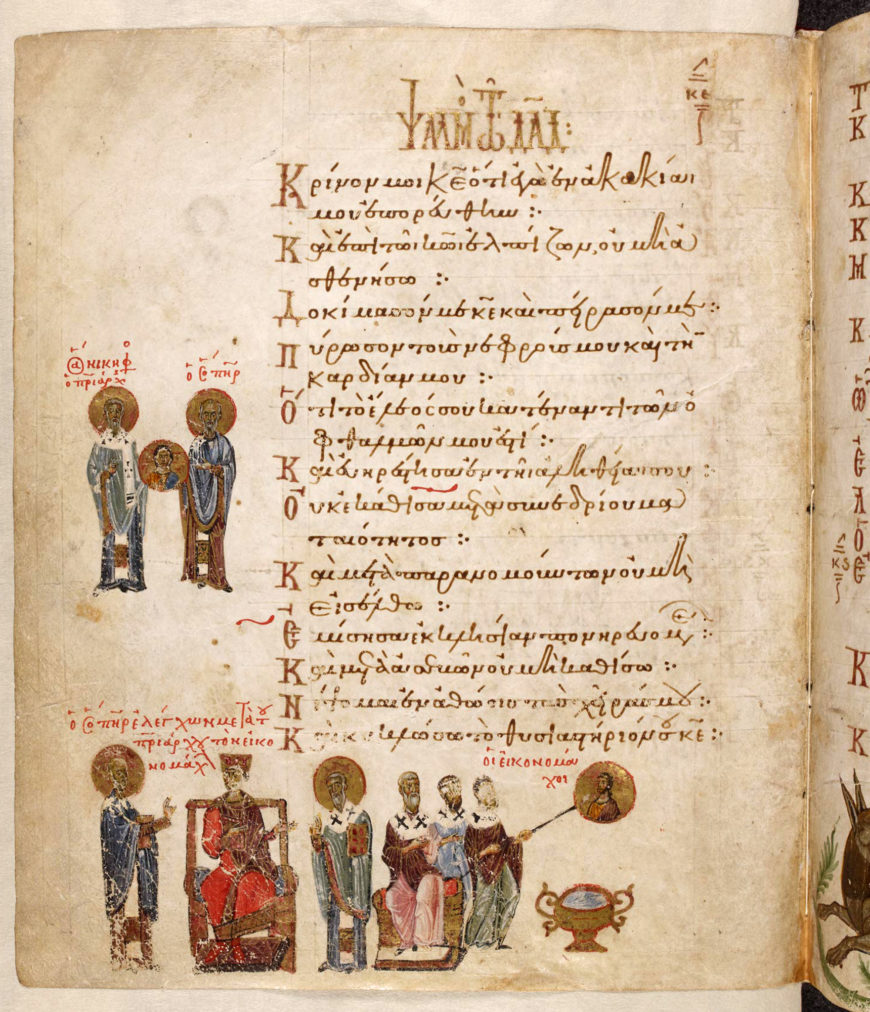 ΨΑΛΜ ΤΩ ΔΑΔ:
κε
Κρίνον μοι κε ὅτι ἐγὼ ἐν ἀκακίαι
μου ἐπορεύθην :·
Καὶ ἐπὶ τῶι κωι ἐλπίζων, οὐ μὴ ἀ
σθενήσω :·
Δοκίμασόν με κε καὶ πείρασόν με :·
Πύρωσον τοὺς νεφρούς μου καὶ τὴν
καρδίαν μου :·
Ὅτι τὸ ἔλεός σου κατέναντι τῶν ὀ
φθαλμῶν μου ἐστί :·
Καὶ εὐηρέστησα ἐν τῆι ἀληθείαι σου :·
Οὐκ ἐκάθισα μετὰ συνεδρίου μα
ταιότητος :·
Καὶ μετὰ παρανομούντων οὐ μὴ
εἰσέλθω :·
Ἐμίσησα ἐκκλησίαν πονηρευομε :·
Καὶ μετὰ ἀσεβῶν οὐ μὴ καθίσω :·
Νίψομαι ἐν ἀθώοις τὰς χεῖράς μου :·
Καὶ κυκλώσω τὸ θυσιαστήριόν σου κε :·
νικηφ
ὁ πριάρχ
ὁ πηρ
ὁ πηρ ἐλέγχων μετὰ τ
πριάρχου τὸν εἰκο
νομάχ
οἱ εἰκονομά
χοι